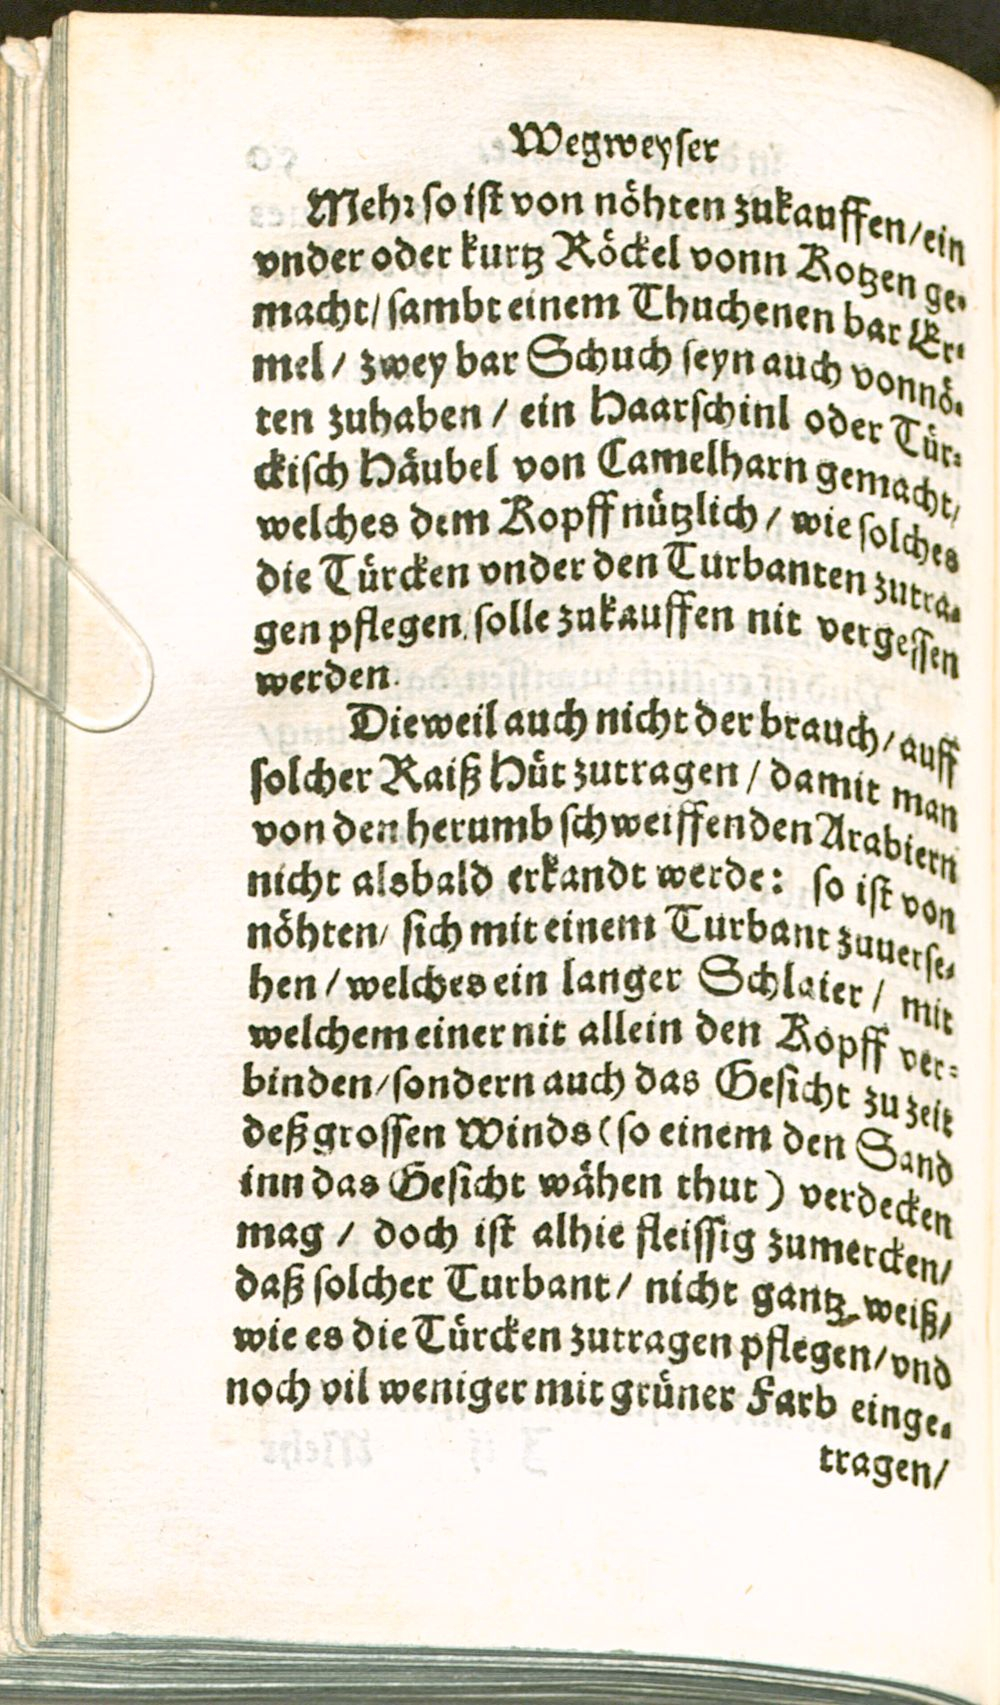 Wegweyser
Mehr so ist von nöhten zukauffen/ein
vnder oder kurtz Röckel vonn Kotzen ge-
macht/ sambt einem Thuchenen bar Er-
mel/ zwey bar Schuch seyn auch vonnö-
ten zuhaben / ein Haarschinl oder Tür-
ckisch Häubel von Camelharn gemacht/
welches dem Kopff nützlich / wie solches
die Türcken vnder den Turbanten zutra-
gen pflegen, solle zukauffen nit vergessen
werden.
Dieweil auch nicht der brauch/ auff
solcher Raiß Hüt zutragen / damit man
von den herumb schweiffenden Arabiern
nicht alsbald erkandt werde: so ist von
nöhten/ sich mit einem Turbant zuuerse-
hen / welches ein langer Schlaier / mit
welchem einer nit allein den Kopff ver-
binden/sondern auch das Gesicht zu zeit
deß grossen Winds (so einem den Sand
inn das Gesicht wähen thut) verdecken
mag / doch ist alhie fleissig zumercken/
daß solcher Turbant/ nicht gantz weiß/
wie es die Türcken zutragen pflegen/vnd
noch vil weniger mit grüner Farb einge-
tragen/